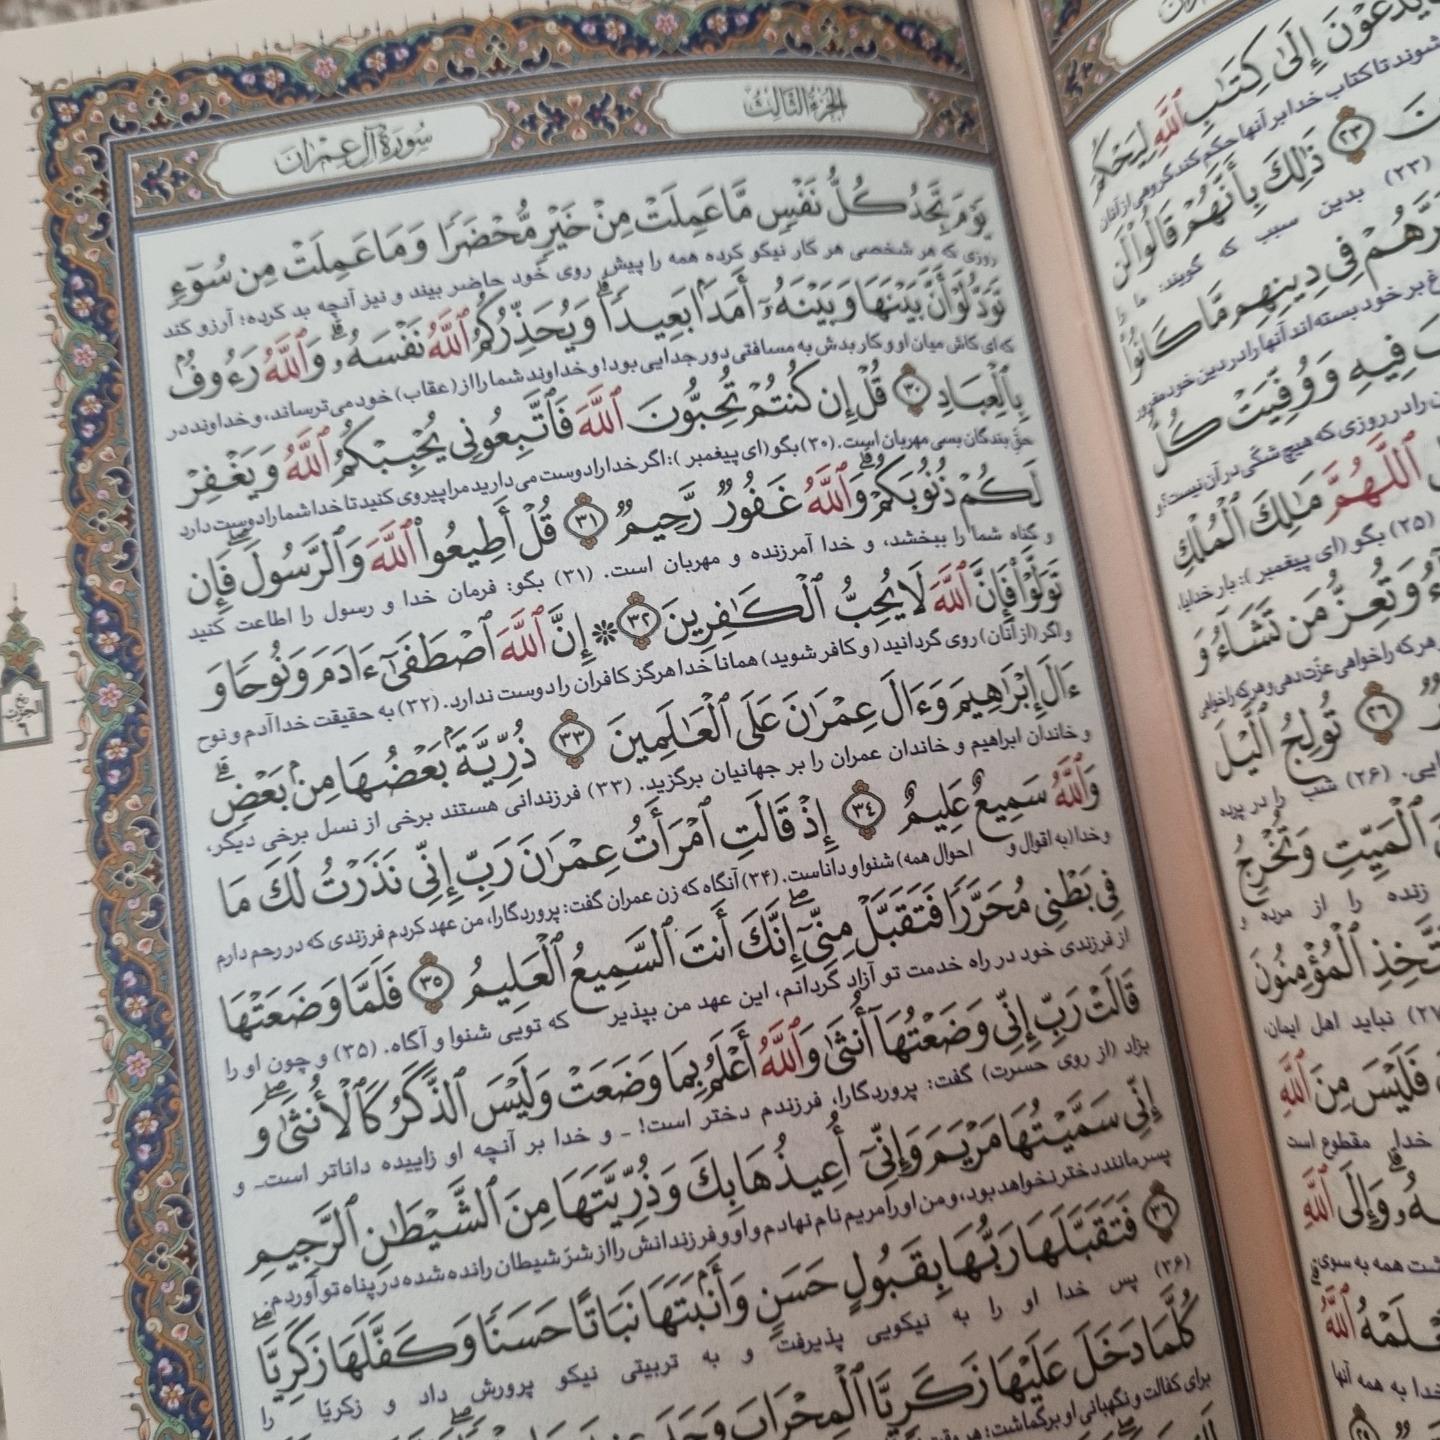 سُورَةُ آلِ عِمْرَانَ
الجُزْءُ الثَّالِثُ
يَوْمَ تَجِدُ كُلُّ نَفْسٍ مَّا عَمِلَتْ مِنْ خَيْرٍ مُّحْضَرًا وَمَا عَمِلَتْ مِن سُوٓءٍ
روزی که هر شخصی هر کار نیکو کرده همه را پیش روی خود حاضر بیند و نیز آنچه بد کرده؛ آرزو کند
تَوَدُّ لَوْ أَنَّ بَيْنَهَا وَبَيْنَهُۥٓ أَمَدًۢا بَعِيدًا ۗ وَيُحَذِّرُكُمُ ٱللَّهُ نَفْسَهُۥ ۗ وَٱللَّهُ رَءُوفٌۢ
که ای کاش میان او و کار بدش به مسافتی دور جدایی بود! و خداوند شما را از (عقاب) خود می‌ترساند، و خداوند در
بِٱلْعِبَادِ ۳۰ قُلْ إِن كُنتُمْ تُحِبُّونَ ٱللَّهَ فَٱتَّبِعُونِى يُحْبِبْكُمُ ٱللَّهُ وَيَغْفِرْ
حقّ بندگان بسی مهربان است. (۳۰) بگو (ای پیغمبر): اگر خدا را دوست می‌دارید مرا پیروی کنید تا خدا شما را دوست دارد
لَكُمْ ذُنُوبَكُمْ ۗ وَٱللَّهُ غَفُورٌ رَّحِيمٌ ۳۱ قُلْ أَطِيعُوا۟ ٱللَّهَ وَٱلرَّسُولَ ۖ فَإِن
و گناه شما را ببخشد، و خدا آمرزنده و مهربان است. (۳۱) بگو: فرمان خدا و رسول را اطاعت کنید
تَوَلَّوْا۟ فَإِنَّ ٱللَّهَ لَا يُحِبُّ ٱلْكَٰفِرِينَ ۳۲ ❊ إِنَّ ٱللَّهَ ٱصْطَفَىٰٓ ءَادَمَ وَنُوحًا وَ
و اگر (از آنان) روی گردانید (و کافر شوید) همانا خدا هرگز کافران را دوست ندارد. (۳۲) به حقیقت خدا آدم و نوح
ءَالَ إِبْرَٰهِيمَ وَءَالَ عِمْرَٰنَ عَلَى ٱلْعَٰلَمِينَ ۳۳ ذُرِّيَّةًۢ بَعْضُهَا مِنۢ بَعْضٍ ۗ
و خاندان ابراهیم و خاندان عمران را بر جهانیان برگزید. (۳۳) فرزندانی هستند برخی از نسل برخی دیگر،
وَٱللَّهُ سَمِيعٌ عَلِيمٌ ۳۴ إِذْ قَالَتِ ٱمْرَأَتُ عِمْرَٰنَ رَبِّ إِنِّى نَذَرْتُ لَكَ مَا
و خدا (به اقوال و احوال همه) شنوا و داناست. (۳۴) آنگاه که زن عمران گفت: پروردگارا، من عهد کردم فرزندی که در رحم دارم
فِى بَطْنِى مُحَرَّرًا فَتَقَبَّلْ مِنِّىٓ ۖ إِنَّكَ أَنتَ ٱلسَّمِيعُ ٱلْعَلِيمُ ۳۵ فَلَمَّا وَضَعَتْهَا
از فرزندی خود در راه خدمت تو آزاد گردانم، این عهد من بپذیر که تویی شنوا و آگاه. (۳۵) و چون او را
قَالَتْ رَبِّ إِنِّى وَضَعْتُهَآ أُنثَىٰ وَٱللَّهُ أَعْلَمُ بِمَا وَضَعَتْ وَلَيْسَ ٱلذَّكَرُ كَٱلْأُنثَىٰ ۖ وَ
بزاد (از روی حسرت) گفت: پروردگارا، فرزندم دختر است! - و خدا بر آنچه او زاییده داناتر است- و
إِنِّى سَمَّيْتُهَا مَرْيَمَ وَإِنِّىٓ أُعِيذُهَا بِكَ وَذُرِّيَّتَهَا مِنَ ٱلشَّيْطَٰنِ ٱلرَّجِيمِ
پسر مانند دختر نخواهد بود، و من او را مریم نام نهادم و او و فرزندانش را از شرّ شیطان رانده شده در پناه تو آوردم.
۳۶ فَتَقَبَّلَهَا رَبُّهَا بِقَبُولٍ حَسَنٍ وَأَنۢبَتَهَا نَبَاتًا حَسَنًا وَكَفَّلَهَا زَكَرِيَّا ۖ
(۳۶) پس خدا او را به نیکویی پذیرفت و به تربیتی نیکو پرورش داد و زکریّا را
كُلَّمَا دَخَلَ عَلَيْهَا زَكَرِيَّا ٱلْمِحْرَابَ وَجَدَ
برای کفالت و نگهبانی او برگماشت؛ هر وقت
يُدْعَوْنَ إِلَىٰ كِتَٰبِ ٱللَّهِ لِيَحْكُمَ
شوند تا کتاب خدا بر آنها حکم کند گروهی از آنان
۲۳ ذَٰلِكَ بِأَنَّهُمْ قَالُوا۟ لَن
(۲۳) بدین سبب که گویند: ما را
فِى دِينِهِم مَّا كَانُوا۟
بر خود بسته‌اند آنها را در دین خود مغرور
فِيهِ وَوُفِّيَتْ كُلُّ
را در روزی که هیچ شکّی در آن نیست؟! و
ٱللَّهُمَّ مَٰلِكَ ٱلْمُلْكِ
(۲۵) بگو (ای پیغمبر): بار خدایا،
وَتُعِزُّ مَن تَشَآءُ وَ
هر که را خواهی عزّت دهی و هر که را خواهی
۲۶ تُولِجُ ٱلَّيْلَ
(۲۶) شب را در پرده
ٱلْمَيِّتِ وَتُخْرِجُ
زنده را از مرده و
ٱلْمُؤْمِنُونَ
نباید اهل ایمان،
فَلَيْسَ مِنَ ٱللَّهِ
خدا مقطوع است
وَإِلَى ٱللَّهِ
همه به سوی
ٱللَّهُ
خدا به همه آنها